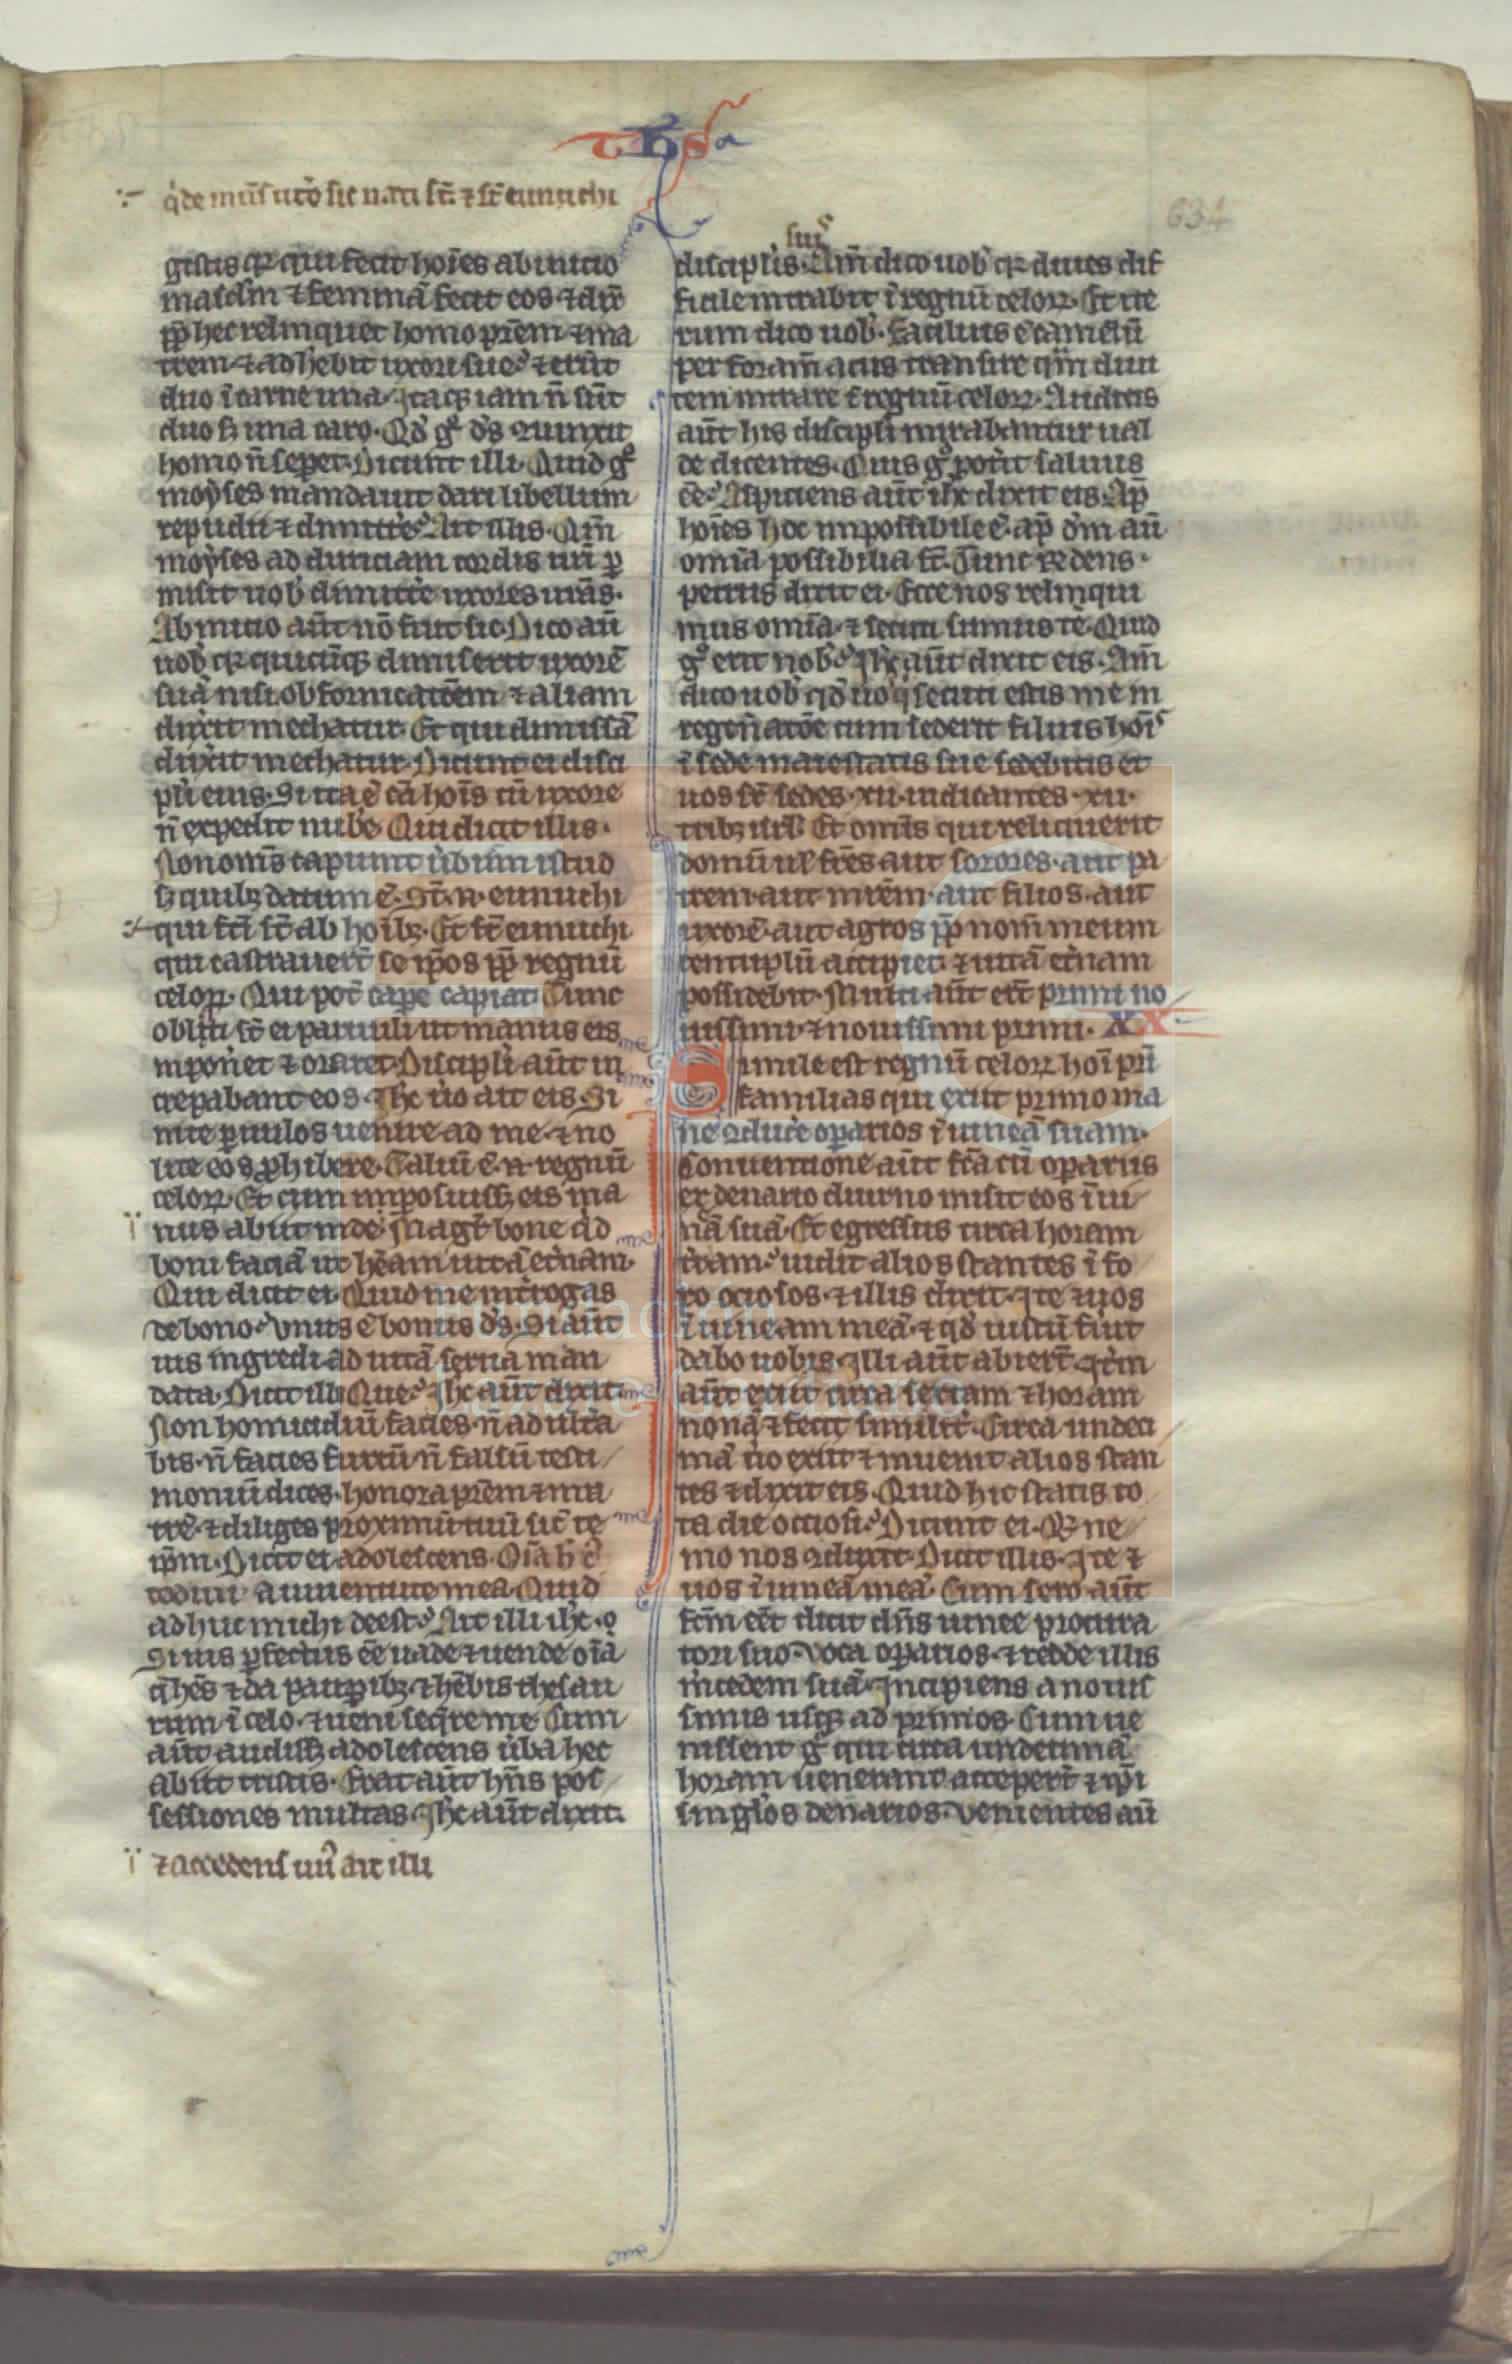 ths
q̇de mr̄ıs utō sic nati st̄ ⁊ st̄ eunuchi
634
gistis qr qui fecit hoīes ab inicio
masc̄lm ⁊ feminā fecit eos ⁊ dix̄
pp̄ hec relinquet homo pr̄em ⁊ ma
trem ⁊ adhēbit uxori sue ⁊ erūt
duo ī carne una. Itaq; iam n̄ sūt
duo sꝫ una caro. Qd̄ gͦ ds̄ ꝯiunxit
homo n̄ seꝑet. Dicunt illi. Quid gͦ
moyses mandauit dari libellum
repudii ⁊ dimittē. Ait illis. Qm̄
moyses ad duriciam cordis ur̄i ꝑ
misit uob̄ dimittē uxores ur̄as.
Ab inicio aūt nō fuit sic. Dico aū
uob̄ qr quicūq; dimiserit uxorē
suā nisi ob fornicatōem ⁊ aliam
duxit mechatur. Et qui dimissā
duxit mechatur. Dicunt ei disci
pli eius. Si ita ē cā hoīs cū uxore
n̄ expedit nubē. Qui dicit illis.
Non om̄s capiunt ūbum istud
sꝫ quibꝫ datum ē. St̄ n. eunuchi
qui fc̄i st̄ ab hoībꝫ. Et st̄ eunuchi
qui castrauert̄ se ip̄os pp̄ regnū
celoꝝ. Qui pot̄ caꝑe capiat. Tunc
oblati st̄ ei paruuli ut manus eis
impon̄et ⁊ oraret. Discipli aūt in
crepabant eos. Ihc ūo ait eis. Si
nite ꝑuulos uenire ad me ⁊ no
lite eos ꝓhibere. Taliū ē n. regnū
celoꝝ. Et cum imposuissꝫ eis ma
nus abiit inde. Magr̄ bone qd
boni faciā ut hēam uitā et̄nam.
Qui dicit ei. Quid me int̄rogas
de bono. Vnus ē bonus ds̄. Si aūt
uis ingredi ad uitā serua man
data. Dicit illi. Que. Ihc aūt dixit
Non homicidiū facies. n̄ adult̄a
bis. n̄ facies furtū n̄ falsū testi
moniū dices. honora pr̄em ⁊ ma
trē. ⁊ diliges proximū tuū sic te
ip̄m. Dicit ei adolescens. Oīa h̄ c̄
todiui a iuuentute mea. Quid
adhuc michi deest. Ait illi ihc.
Si uis ꝑfectus eē uade ⁊ uende oīa
q̄ hēs ⁊ da pauꝑibꝫ ⁊ hēbis thesau
rum ī celo. ⁊ ueni seq̄re me. Cum
aūt audissꝫ adolescens ūba hec
abiit tristis. Erat aūt hn̄s pos
sessiones multas. Ihc aūt dixit.
⁊ accedens un̄ ait illi
suis
discipl̄is. Am̄ dico uob̄ qr diues dif
ficile intrabit ī regnū celoꝝ. Et ite
rum dico uob̄. Facilius ē camelū
per foram̄ acus transire qm̄ diui
tem intrare ī regnū celoꝝ. Auditis
aūt his discipli mirabantur ual
de dicentes. Quis gͦ potit saluus
eē. Aspiciens aūt ihc dixit eis. Ap̄
hoīes hoc impossibile ē. ap̄ dm̄ aū
omīa possibilia st̄. Tunc rn̄dens
petrus dixit ei. Ecce nos relinqui
mus omīa ⁊ secuti sumus te. Quid
gͦ erit nob̄. Ihc aūt dixit eis. Am̄
dico uob̄ qd̄ uos q̇ secuti estis me in
regen̄atōe cum sederit filius hoīs
ī sede maiestatis sue sedebitis et
uos st̄ sedes .xii. iudicantes .xii.
tribꝫ isrl̄. Et omīs qui reliquerit
domū ul̄ fr̄es aut sorores. aut pa
trem aut mr̄em. aut filios. aut
uxorē. aut agros pp̄ nom̄ meum
centuplū accipiet. ⁊ uitā et̄nam
possidebit. Multi aūt ert̄ primi no
uissimi. ⁊ nouissimi primi. XX.
Simile est regnū celoꝝ hoī pr̄i
familias qui exiit primo ma
ne ꝯducē oꝑarios ī uineā suam.
Conuentione aūt fc̄a cū oꝑariis
ex denario diurno misit eos ī ui
nā suā. Et egressus circa horam
t̄ciam. uidit alios stantes ī fo
ro ociosos. ⁊ illis dixit. Ite ⁊ uos
ī uineam meā. ⁊ qd̄ iustū fūit
dabo uobis. Illi aūt abiert̄. It̄m
aūt exiit circa sextam ⁊ horam
nonā ⁊ fecit similit̄. Circa undeci
mā ūo exiit ⁊ inuenit alios stan
tes ⁊ dixit eis. Quid hic statis to
ta die ociosi. Dicunt ei. Qr ne
mo nos ꝯduxit. Dicit illis. Ite ⁊
uos ī uineā meā. Cum sero aūt
fc̄m eēt dicit dn̄s uinee procura
tori suo. Voca oꝑarios. ⁊ redde illis
m̄cedem suā. Incipiens a nouis
simis usq; ad primos. Cum ue
nissent gͦ qui circa undecimā
horam uenerant accepert̄ ⁊ ip̄i
singl̄os denarios. Venientes aū
Fundación
Lázaro Galdiano